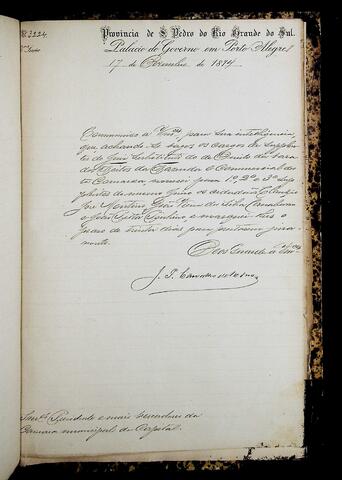 N. 3224
Provincia de S. Pedro do Rio Grande do Sul.
Palacio do Governo em Porto Alegre,
17 de de 1874
Communico a Vmces, para sua intelligencia,
que achando-se vagos os cargos de supplen-
tes do Juiz Substituto do de Direito da Vara
dos Feitos da Fazenda e Commercial des-
ta Comarca, nomeei para 1º, 2º e 3º sup-
plentes do mesmo Juizo os cidadãos
José Monteiro, da Silva
e João e marquei-lhes o
prazo de trinta dias para prestarem jura-
mento.
Deos Guarde a Vmces
J. P. Carvalho de Moraes
Snrs. Presidente e mais vereadores da
Camara municipal da Capital.